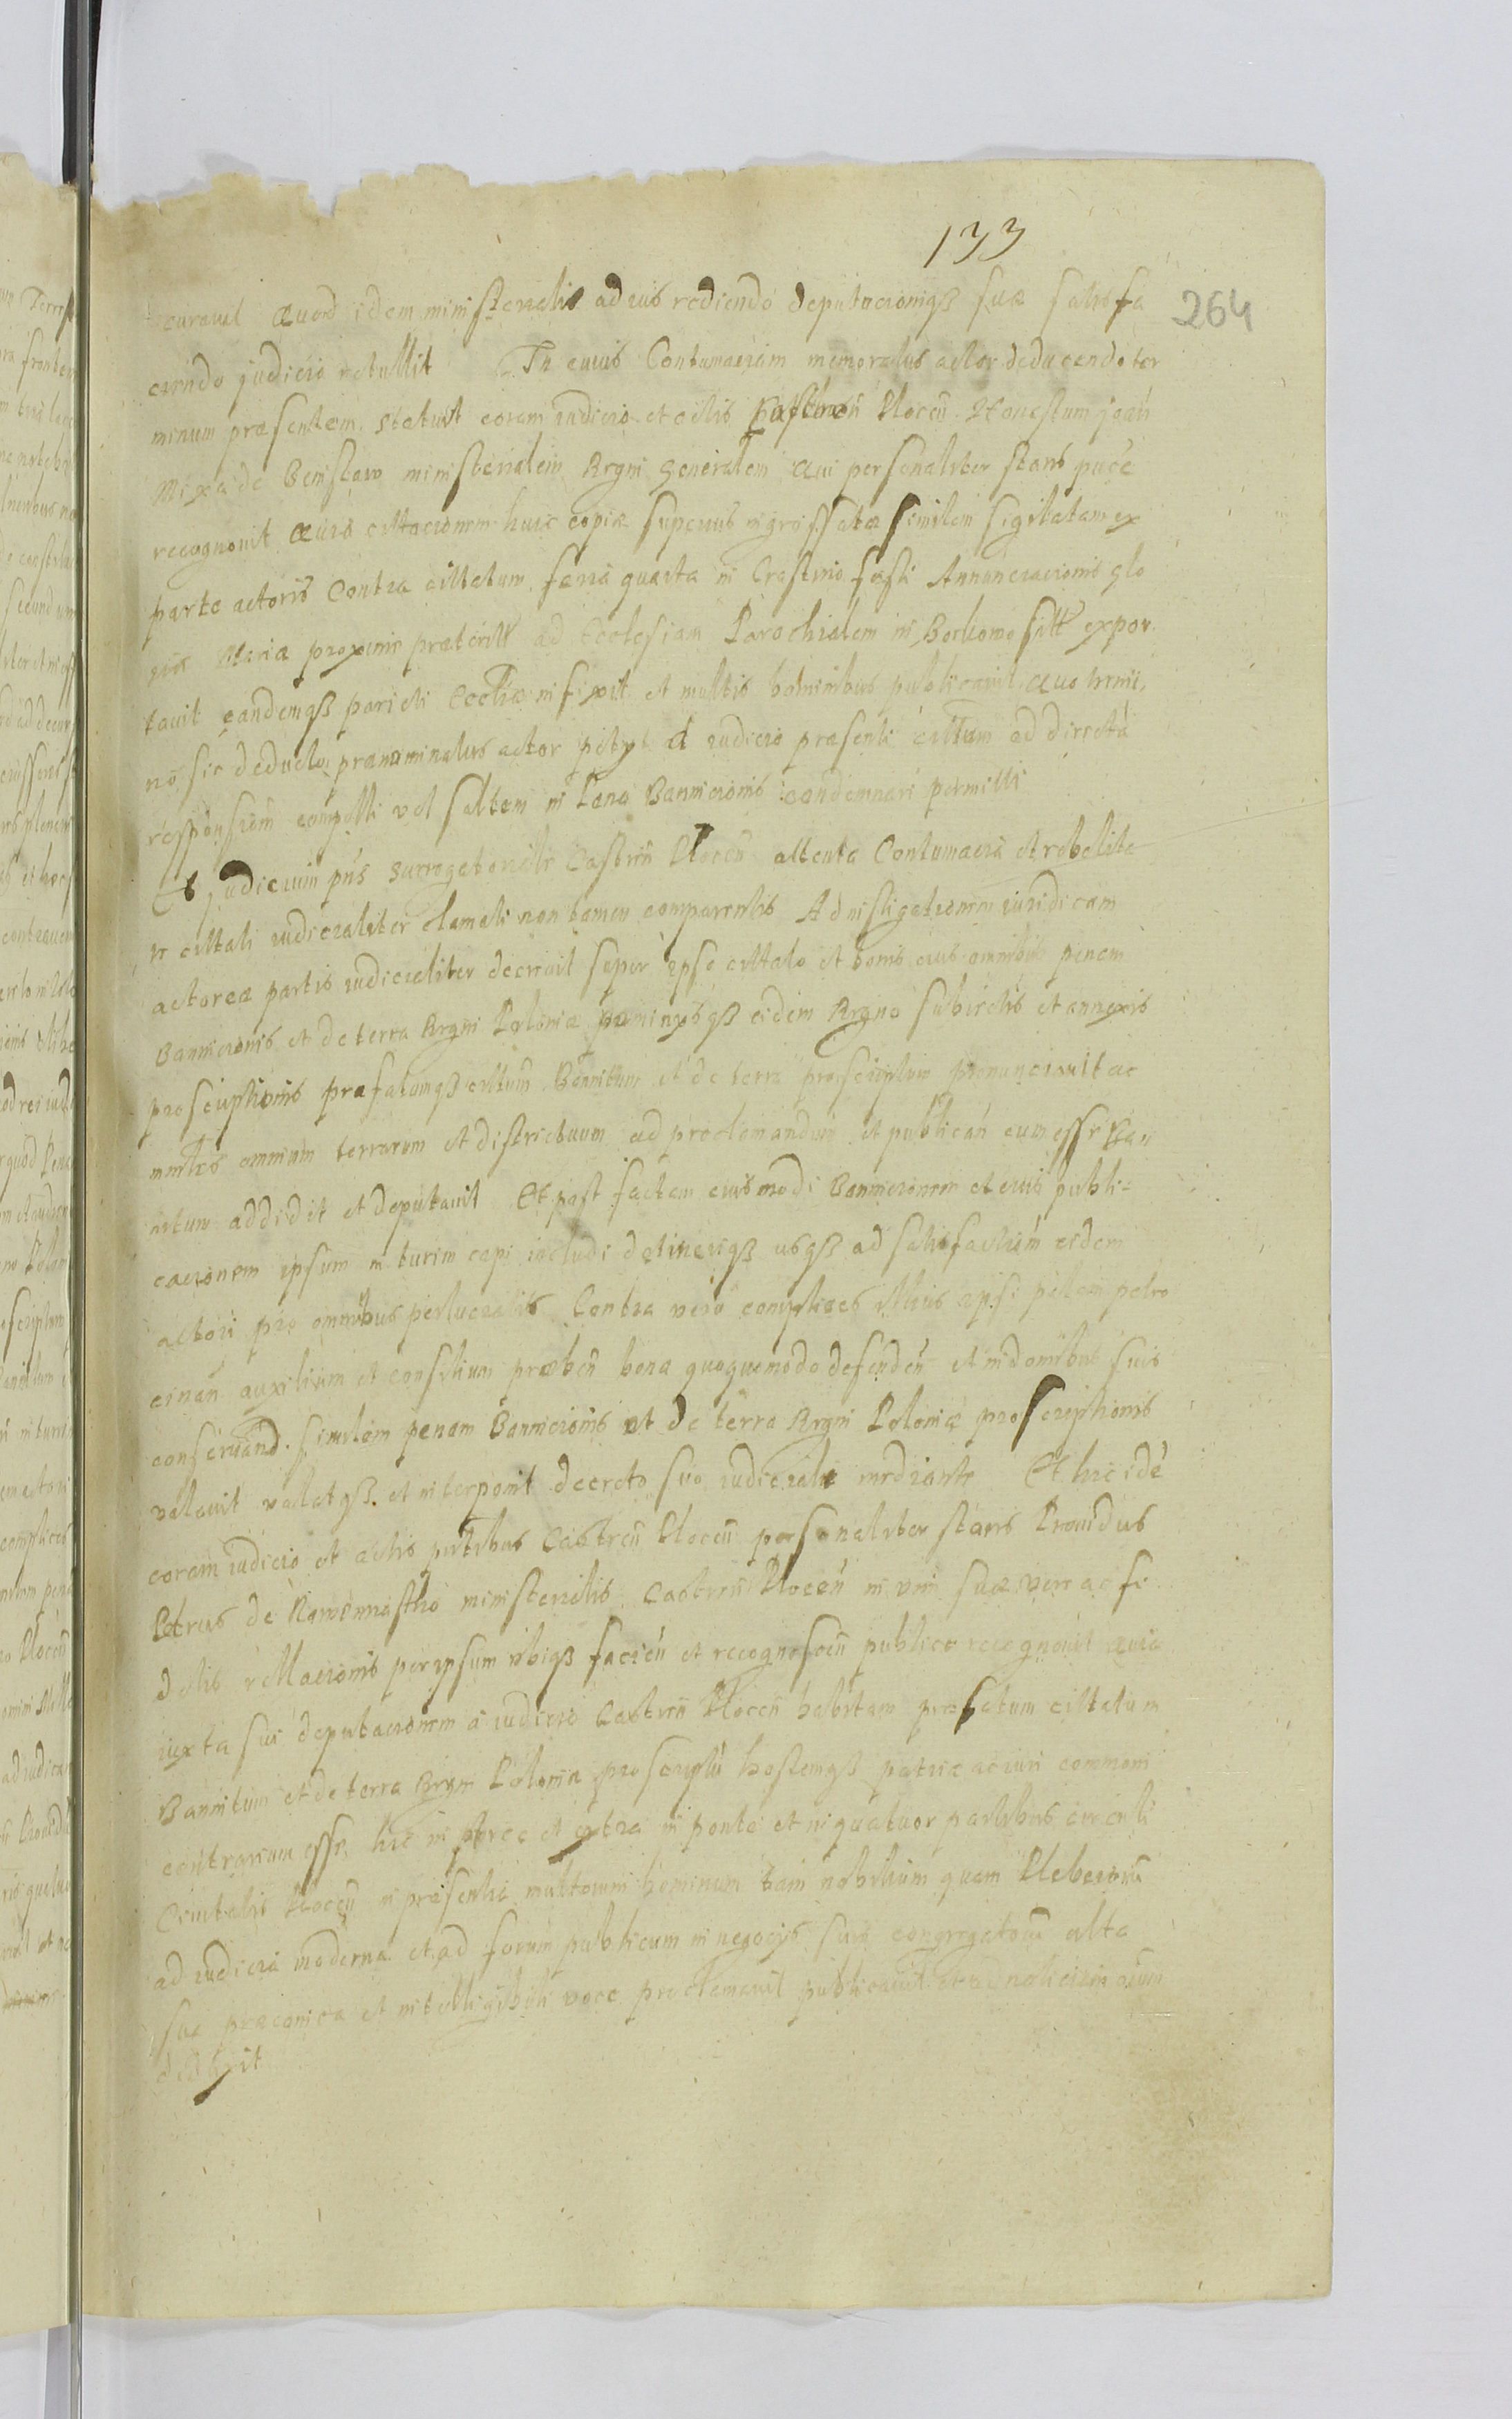 133
264
curavit Quod idem ministerialis ad ius rediendo deputacioniqȝ suæ satisfa
ciendo judicio retullit In cuius Contumaciam memoratus actor deducendo ter
minum præsentem statuit coram iudicio et actis Castren̄ Plocen̄ Honestum joan̄
de ministerialem Regni generalem Qui personaliter stans
recognovit Quia cittacionem huic copiæ superius ingrossatæ similem sigilatam ex
parte actoris Contra cittatum feria quarta in Crastino festi Annunciacionis glo
Mariæ proxime præterit ad Ecclesiam Parochialem in sitt expor
tavit eandemqȝ parieti Eccliæ infixit et multis hominibus publicavit Quo termi
no sic deducto prænominatus actor petyt a iudicio præsenti cittum ad directā
responsium compelli vel saltem in Pæna Bannicionis condemnari permitti
Et judicium pn̄s Surrogatoriale Castren̄ Plocen̄ attenta Contumacia et rebelite
cittati iudicialiter clamati non tamen comparentis Ad instigationem iuridicam
actoreæ partis iudicialiter decrevit super ipso cittato et bonis eius omnibus penam
Bannicionis et de terra Regni Poloniæ Dominysqȝ eidem Regno subiectis et annexis
proscriptionis præfatumqȝ cittum Bannitum et de terra proscriptum pronunciavit ac
omnium terrarum et districtuum ad proclamandum et publican̄ eum esse Ban
nitum addidit et deputavit Et post factam eiusmodi Bannicionem et eius publi-
cacionem ipsum in turim capi includi detineriqȝ usqȝ ad satisfactium eidem
actori pro omnibus perlucratis Contra vero complices illius ipsi patro
cinan̄ auxilium et consilium præben̄ bona quoquomodo defenden̄ et in domibus suis
conservand. similem penam Bannicionis et de terra Regni Poloniæ proscriptionis
valavit valatqȝ. et interponit decreto suo iudiciali mediante Et hic idē
coram iudicio et actis pntibus Castren̄ Plocen̄ personaliter stans Providus
Petrus de ministerialis Castren̄ Plocen̄ in vim suæ veræ ac fi
delis rellacionis per ipsum ibiqȝ facien̄ et recognoscen̄ publice recognovit Quia
iuxta sui deputacionem a iudicio Castren̄ Plocen̄ habitam præfatum cittatum
Bannitum et de terra Regni Poloniæ proscriptū hostemqȝ patriæ ac iuri communi
contrarium esse, hic in arce et extra in ponte et in quatuor partibus circuli
Civitatis Plocen̄ in præsentia multorum hominum tam nobilium quam Plebeiorū
ad iudicia moderna et ad forum publicum in negocys suis congregatorū alta
sua præconica et inteligibili voce proclamavit publicavit et ad noticiam